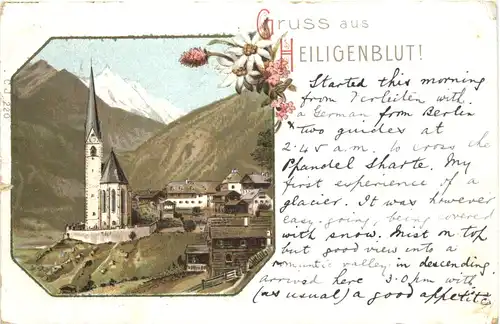 Gruss aus
Heiligenblut!
Started this morning
from Ferleiten with
a German from Berlin
two guides at
2.45 a.m. to cross the
Pfandel Sharte. My
first experience of a
glacier. It was however
easy-going, being covered
with snow. Mist on top
but good view into a
romantic valley in descending
arrived here 3.0 p.m with
(as usual) a good appetite